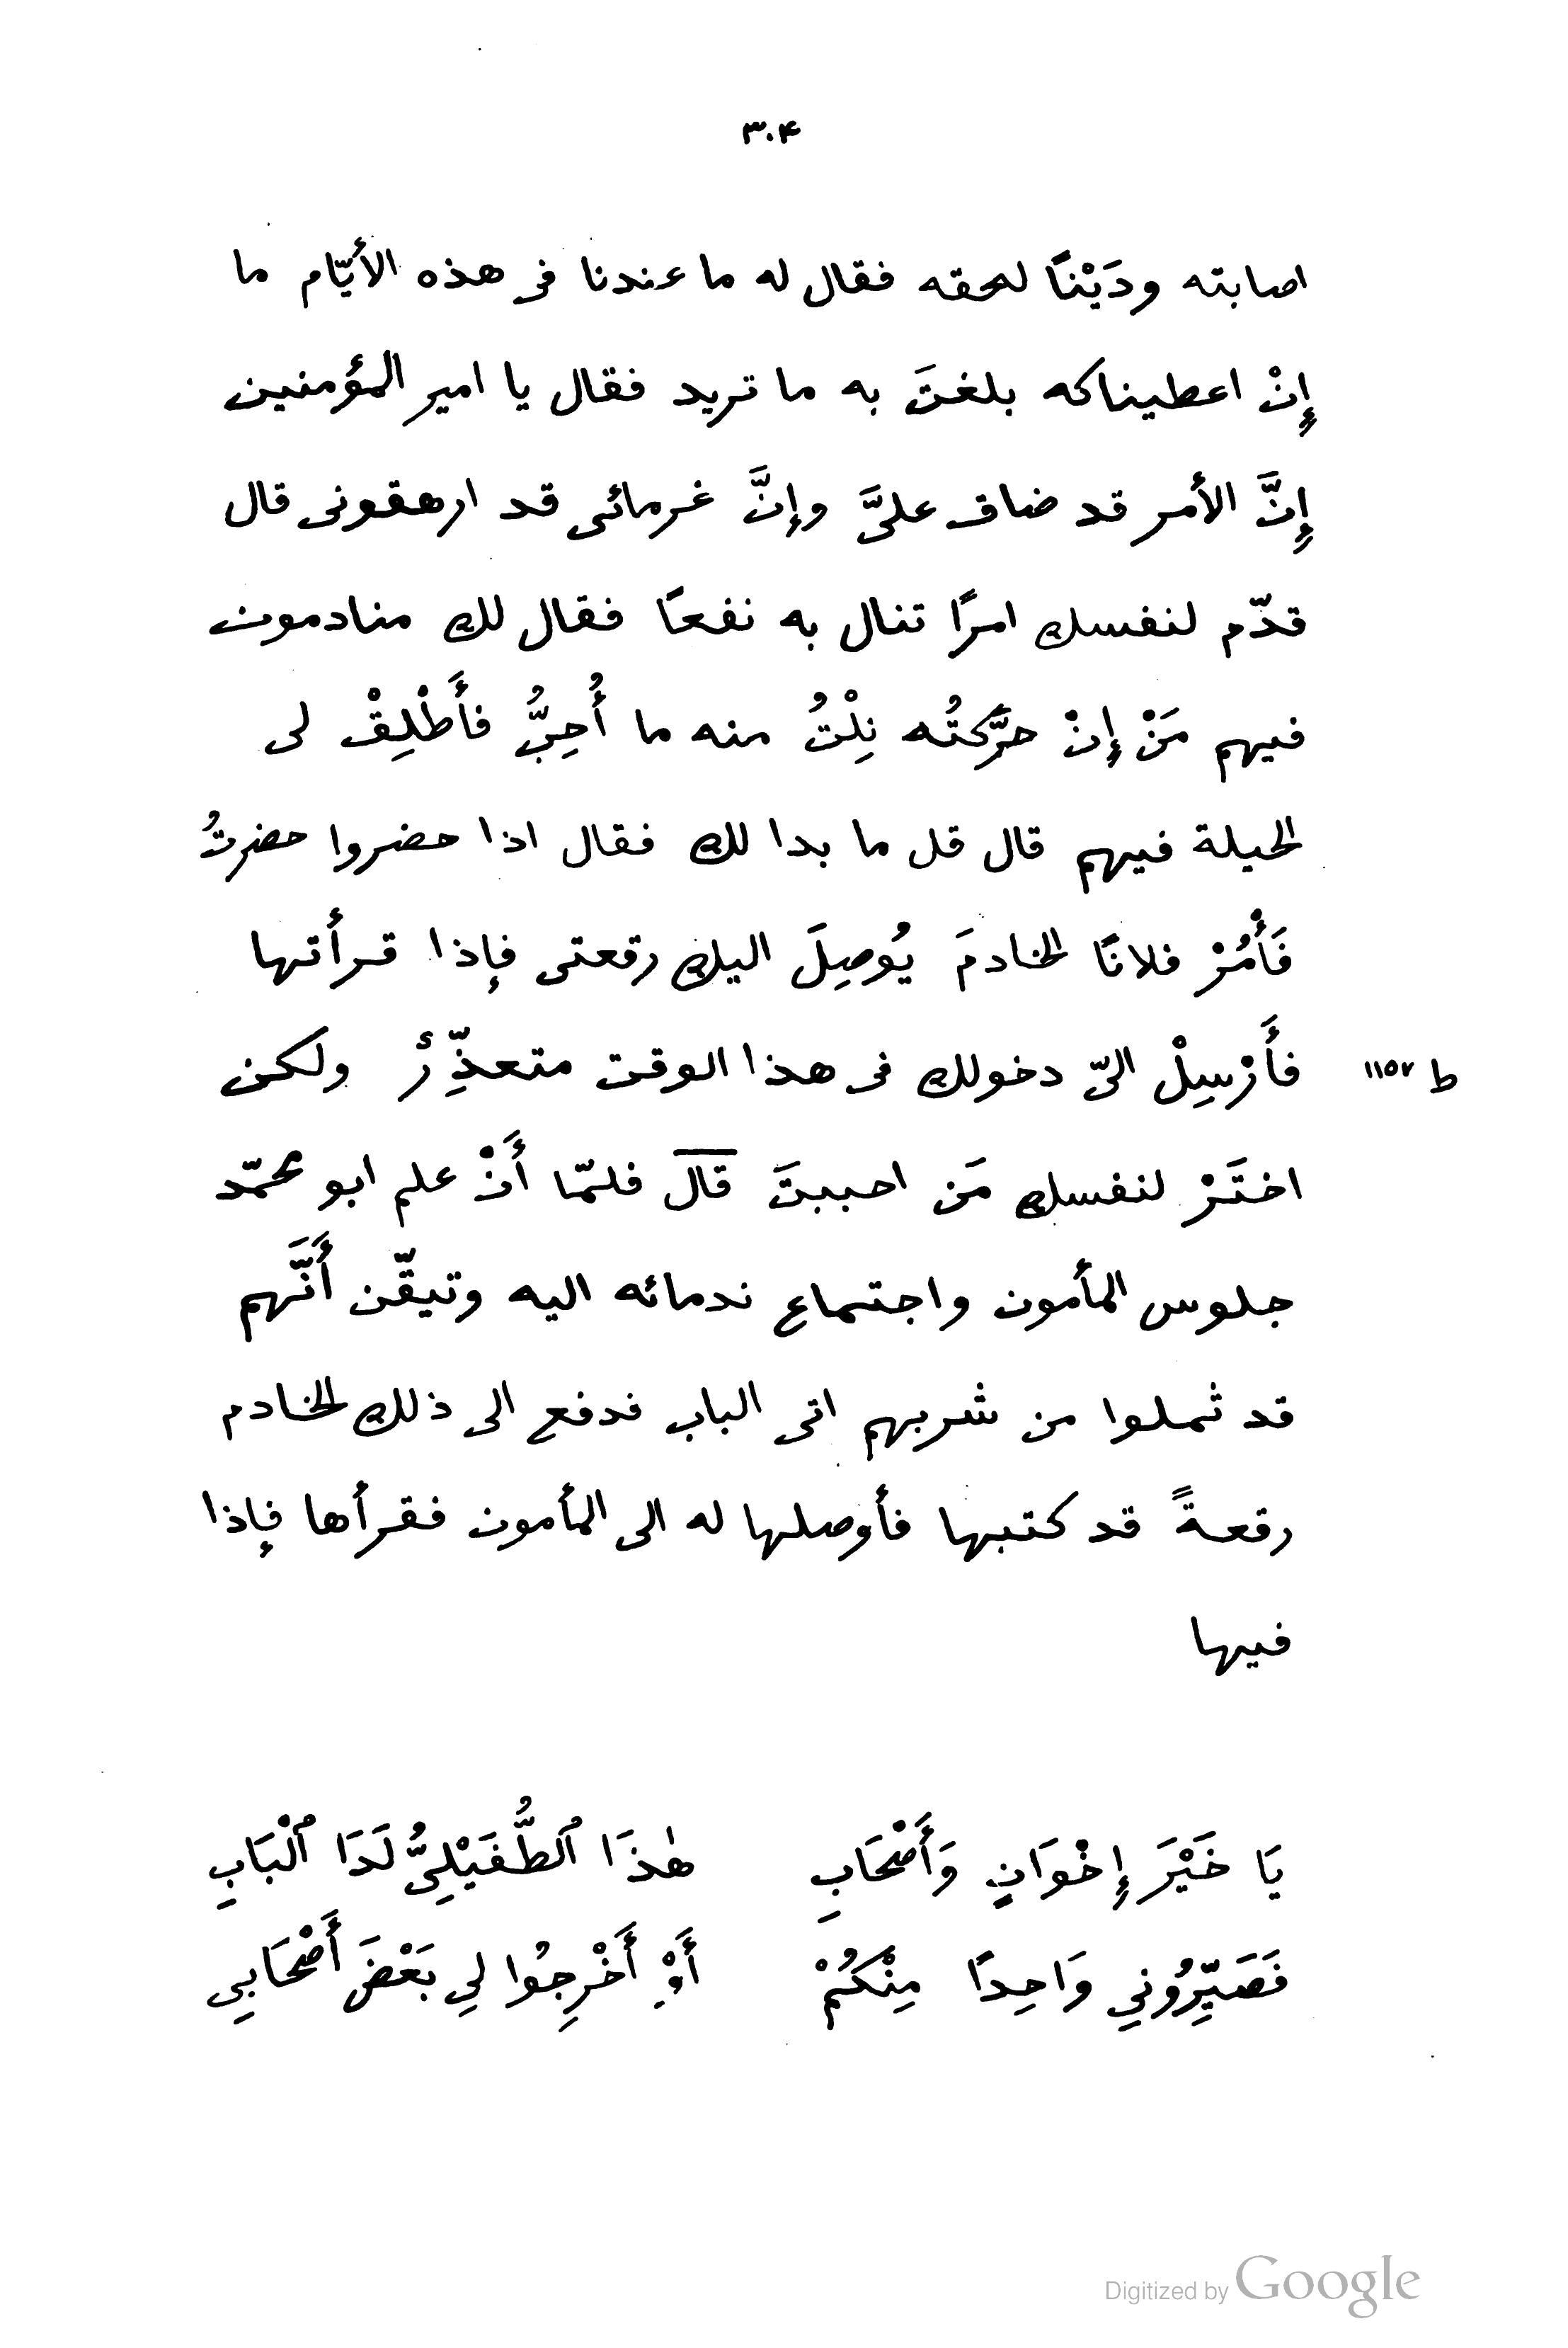 ٣٠۴
اصابته ودَيْنًا لحقه فقال له ما عندنا فى هذه الأيّام ما
إِنْ اعطيناكه بلغتَ به ما تريد فقال يا امير المؤمنين
إِنَّ الأمر قد ضاق علىَّ وإنَّ غرمائى قد ارهقونى قال
قدّم لنفسك امرًا تنال به نفعًا فقال لك منادمون
فيهم مَنْ إنْ حرَّكتُه نِلْتُ منه ما أُحِبُّ فأَطْلِقْ لى
الحيلة فيهم قال قل ما بدا لك فقال اذا حضروا حضرتُ
فَأْمُرْ فلانًا الخادمَ يُوصِلَ اليك رقعتى فإذا قرأتها
فأَرْسِلْ الىّ دخولك فى هذا الوقت متعذِّرٌ ولكن
ط ١١٥٧
اختَرْ لنفسك مَن احببتَ قال فلمّا أَنْ علم ابو محمّد
جلوس المأمون واجتماع ندمائه اليه وتيقّن أَنَّهم
قد ثملوا من شربهم اتى الباب فدفع الى ذلك الخادم
رقعةً قد كتبها فأوصلها له الى المأمون فقرأها فإذا
فيها
يَا خَيْرَ إِخْوَانٍ وَأَصْحَابِ هٰذَا ٱلطُّفَيْلِىُّ لَدَا ٱلْبَابِ
فَصَيِّرُونِي وَاحِدًا مِنْكُمُ أَوْ أَخْرِجُوا لِي بَعْضَ أَصْحَابِي
Digitized by Google